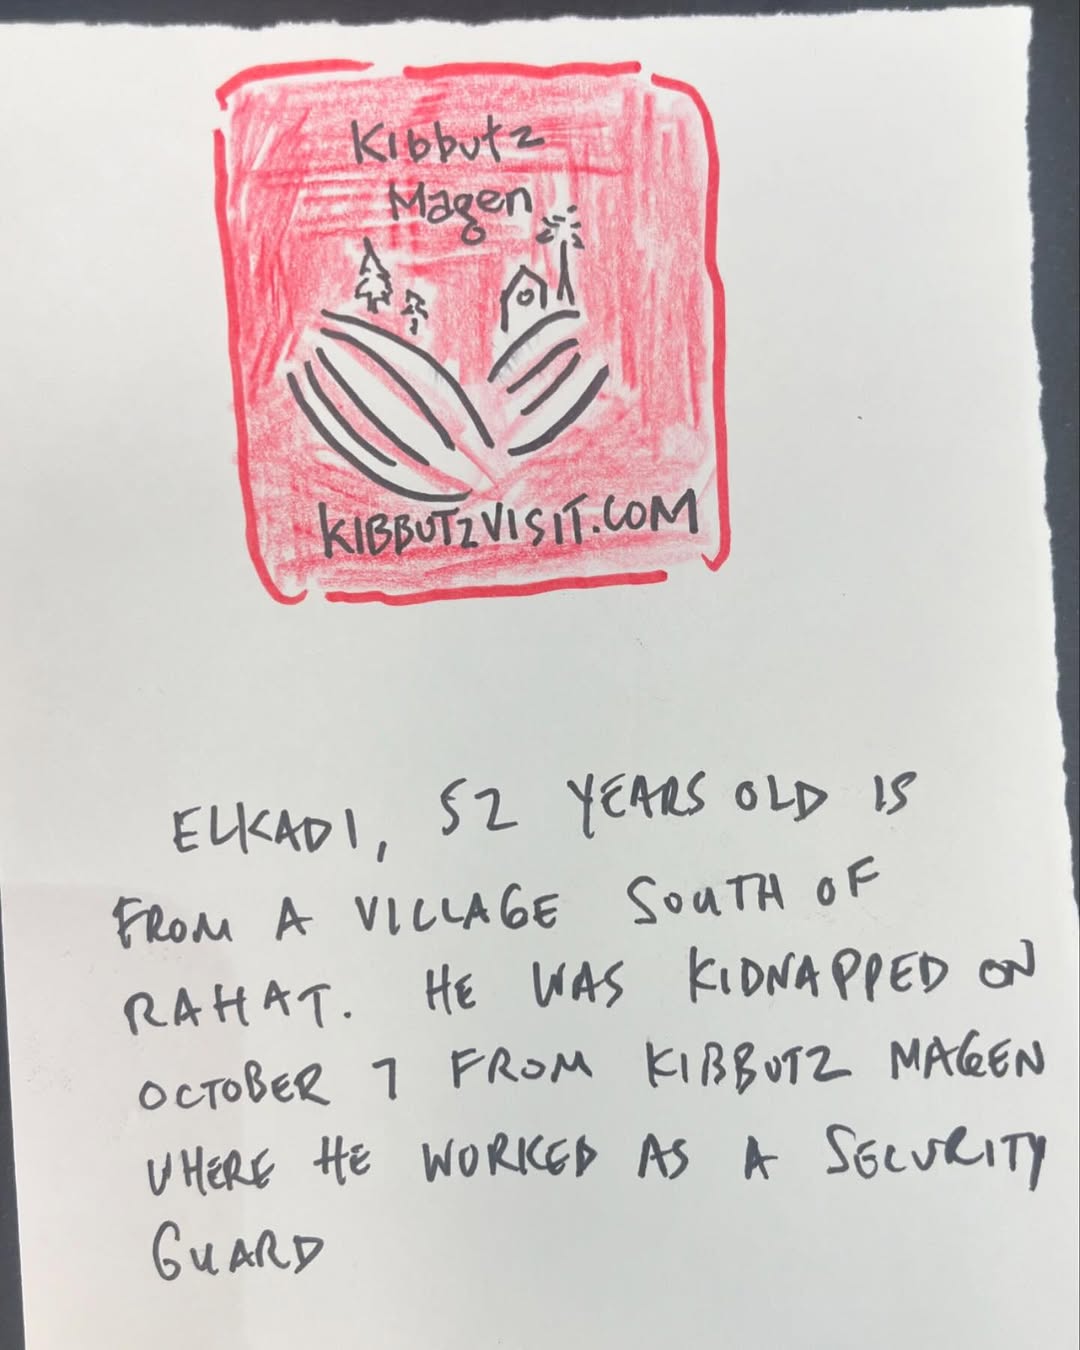 Kibbutz
Magen
KIBBUTZVISIT.COM
ELKADI, 52 YEARS OLD IS
FROM A VILLAGE SOUTH OF
RAHAT. HE WAS KIDNAPPED ON
OCTOBER 7 FROM KIBBUTZ MAGEN
WHERE HE WORKED AS A SECURITY
GUARD